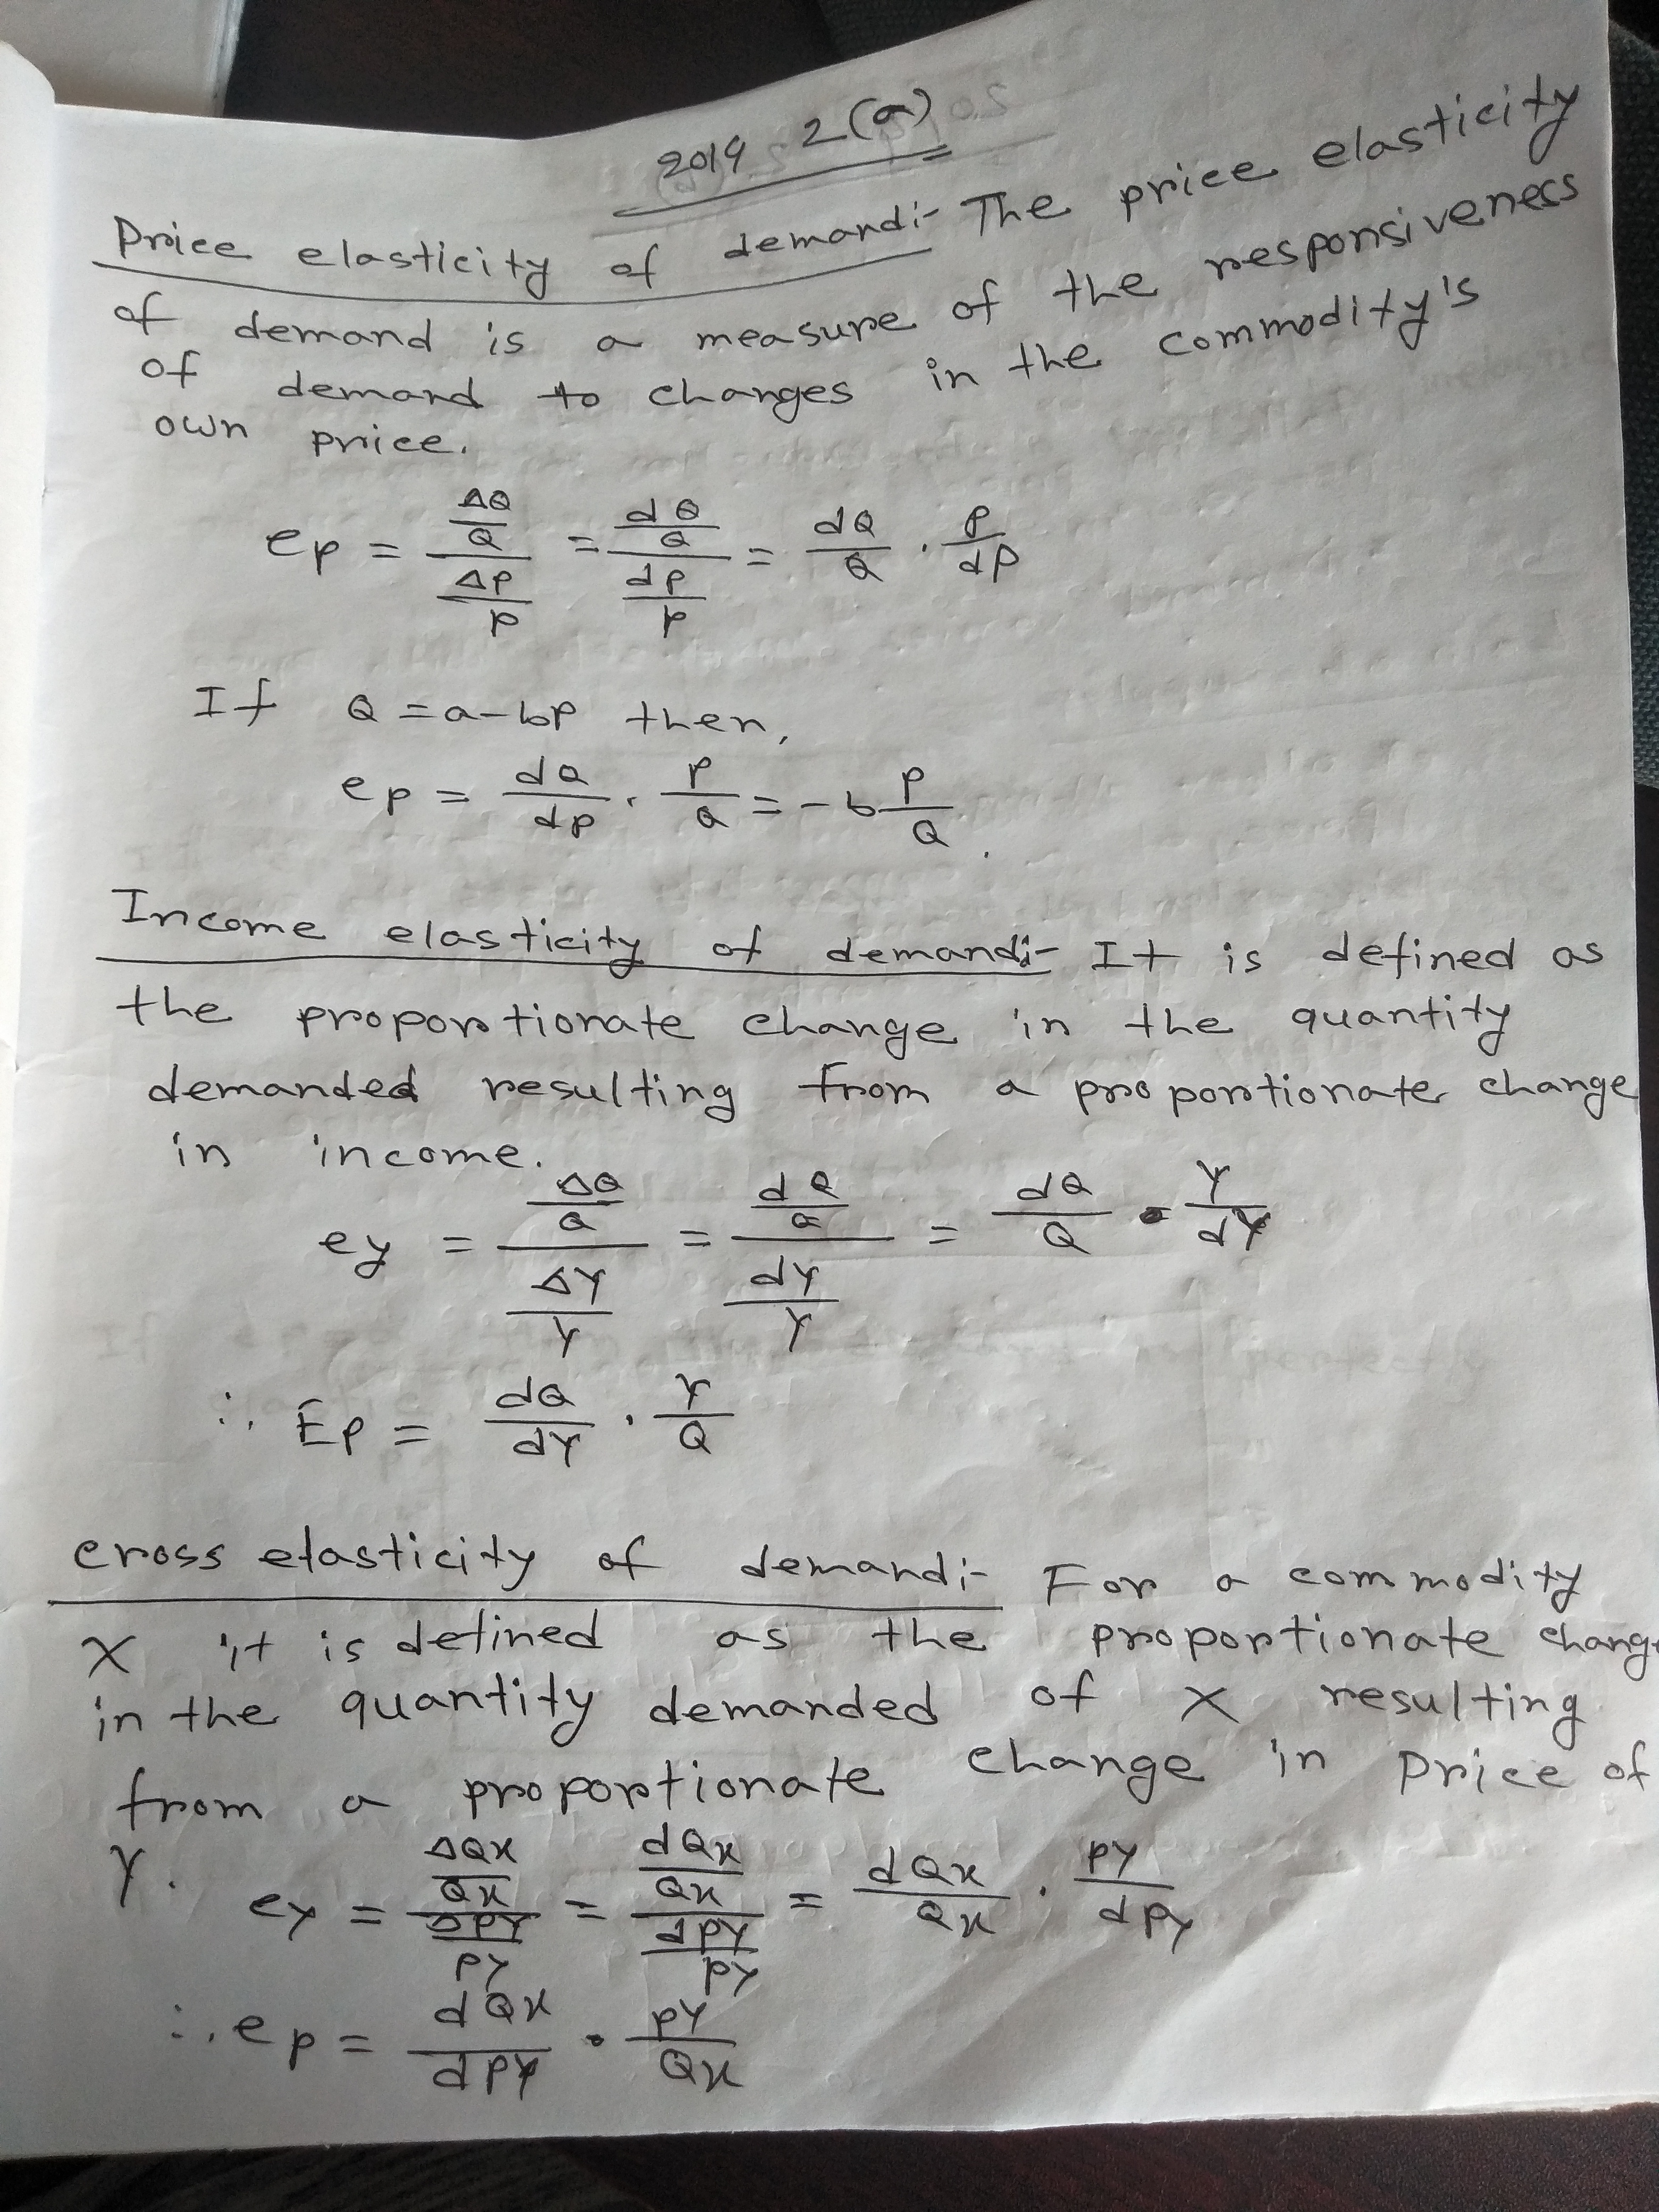 2019 2(a)
Price elasticity of demand:- The price elasticity
of demand is a measure of the responsiveness
of demand to changes in the commodity's
own price.
ep = (ΔQ/Q)/(ΔP/P) = (dQ/Q)/(dP/P) = dQ/Q . P/dP
If Q = a-bP then,
ep = dQ/dP . P/Q = -b P/Q.
Income elasticity of demand:- It is defined as
the proportionate change in the quantity
demanded resulting from a proportionate change
in income.
ey = (ΔQ/Q)/(ΔY/Y) = (dQ/Q)/(dY/Y) = dQ/Q . Y/dY
∴ Ep = dQ/dY . Y/Q
cross elasticity of demand:- For a commodity
X it is defined as the proportionate chang
in the quantity demanded of X resulting
from a proportionate change in Price of
Y. ey = (ΔQx/Qx)/(ΔPY/PY) = (dQx/Qx)/(dPY/PY) = dQx/Qx . PY/dPY
∴ ep = dQx/dPY . PY/Qx